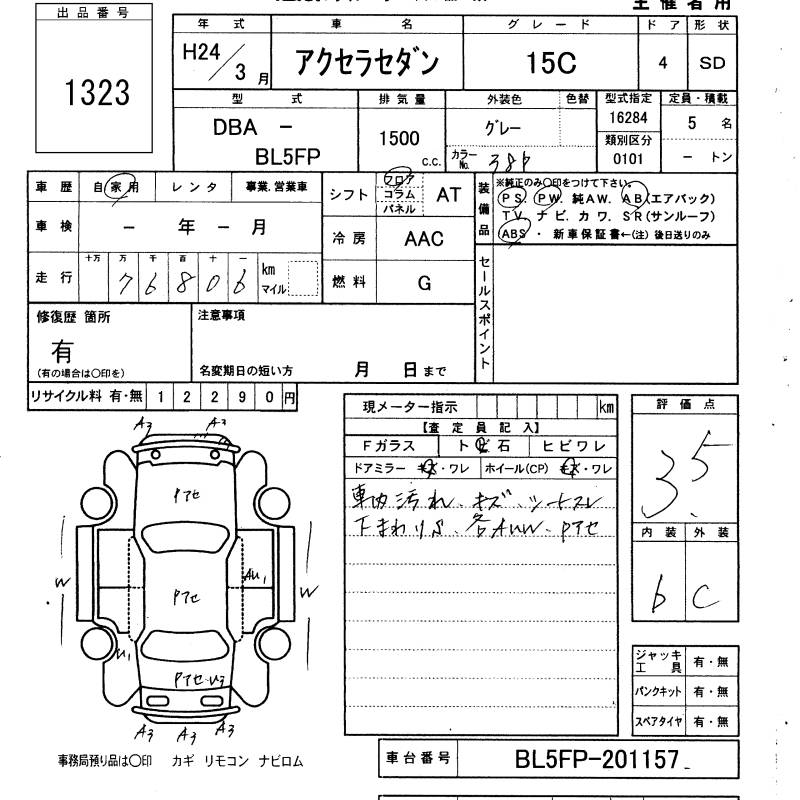 主催者用
出品番号
1323
年式 車名 グレード ドア 形状
H24/3月 アクセラセダン 15C 4 SD
型式 排気量 外装色 色替 型式指定 定員・積載
DBA - BL5FP 1500 c.c. グレー 16284 5 名
カラーNo. 38P 類別区分 0101 - トン
車歴 自家用 レンタ 事業.営業車
車検 - 年 - 月
走行 十万 万 千 百 十 一 km マイル
76806
シフト フロア コラム パネル AT
冷房 AAC
燃料 G
装備品 ※純正のみ○印をつけて下さい。
PS. PW. 純AW. AB(エアバック)
TV. ナビ. カワ. SR(サンルーフ)
ABS ・ 新車保証書←(注) 後日送りのみ
セールスポイント
修復歴 箇所
有
(有の場合は○印を)
注意事項
名変期日の短い方 月 日まで
リサイクル料 有・無 12290円
現メーター指示 km
【査定員記入】
Fガラス トビ石 ヒビワレ
ドアミラー キズ・ワレ ホイール(CP) キズ・ワレ
車内汚れ、キズ、シートスレ
下まわりS、各AUW、Pアセ
評価点
3.5
内装 外装
b C
A3 A3
Pアセ
W AU1 W
Pアセ
U1
Pアセ U3
A3 A3 A3
ジャッキ工具 有・無
パンクキット 有・無
スペアタイヤ 有・無
事務局預り品は○印 カギ リモコン ナビロム
車台番号 BL5FP-201157